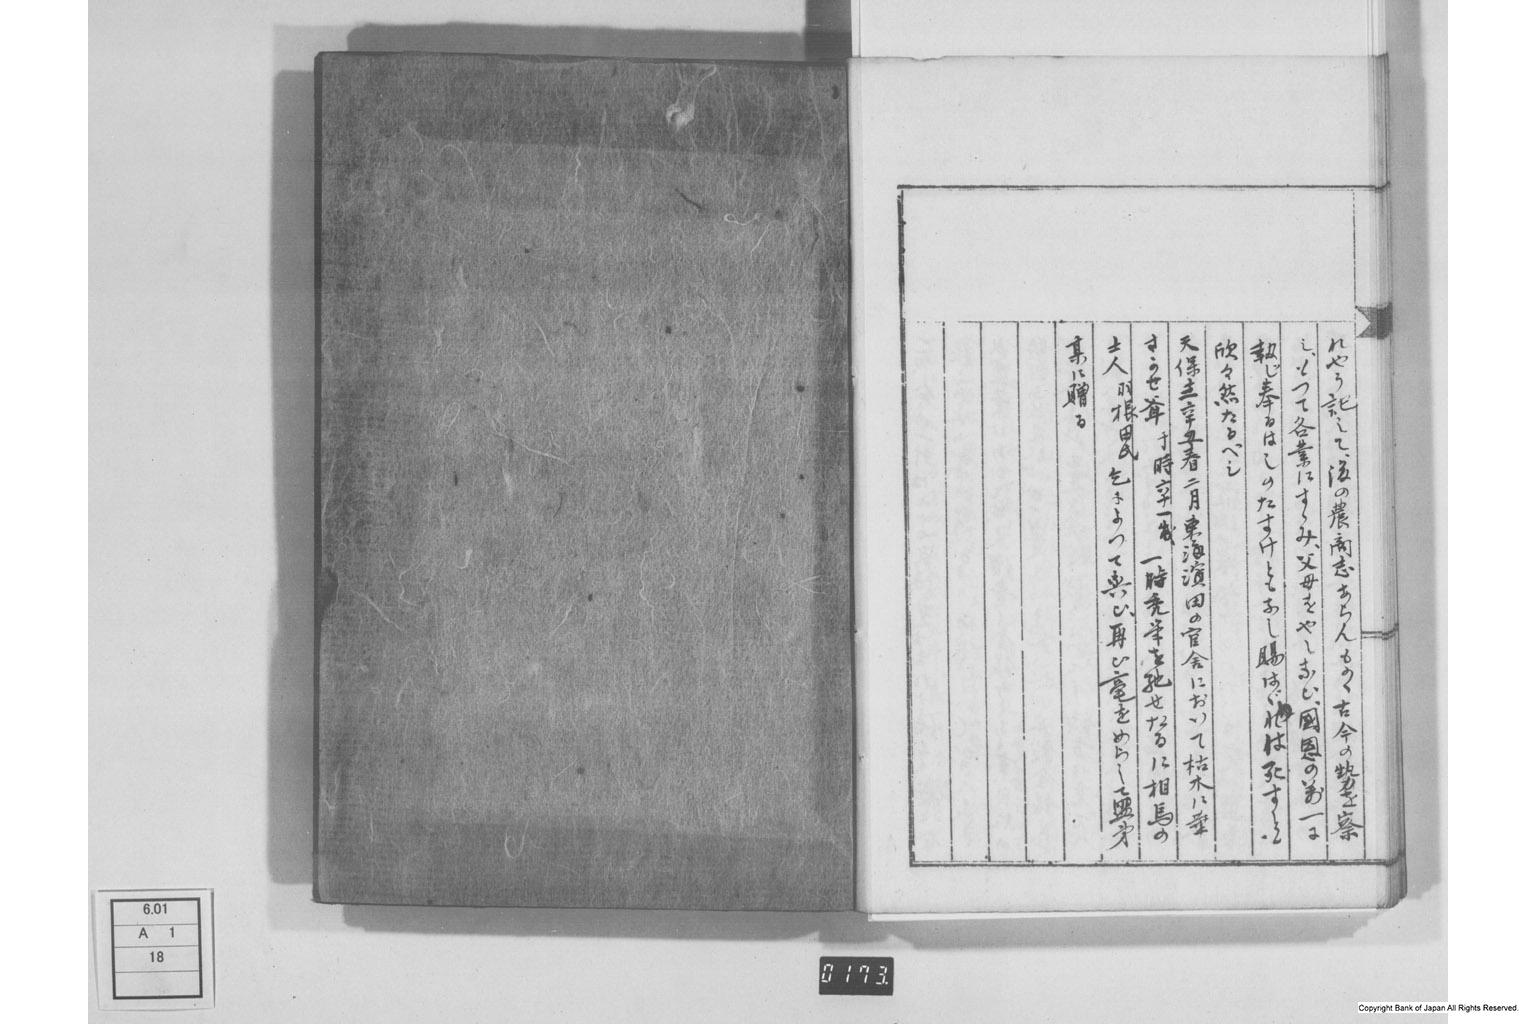 れやう記して、後の農商志あらんもの、古今の勢を察
し、もつて各業にすゝみ、父母をやしなひ、國恩の萬一に
報じ奉るはしのたすけともなし賜はゞ、死すとも
欣々然たるべし
天保十二辛丑春二月東海濱田の官舎において枯木に華
さかせ爺 于時六十一歳 一時禿筆を馳せたるに相馬の
士人羽根田氏乞によつて與ひ、再ひ毫をめらして盟弟
某に贈る
6.01
A 1
18
0173
Copyright Bank of Japan All Rights Reserved.